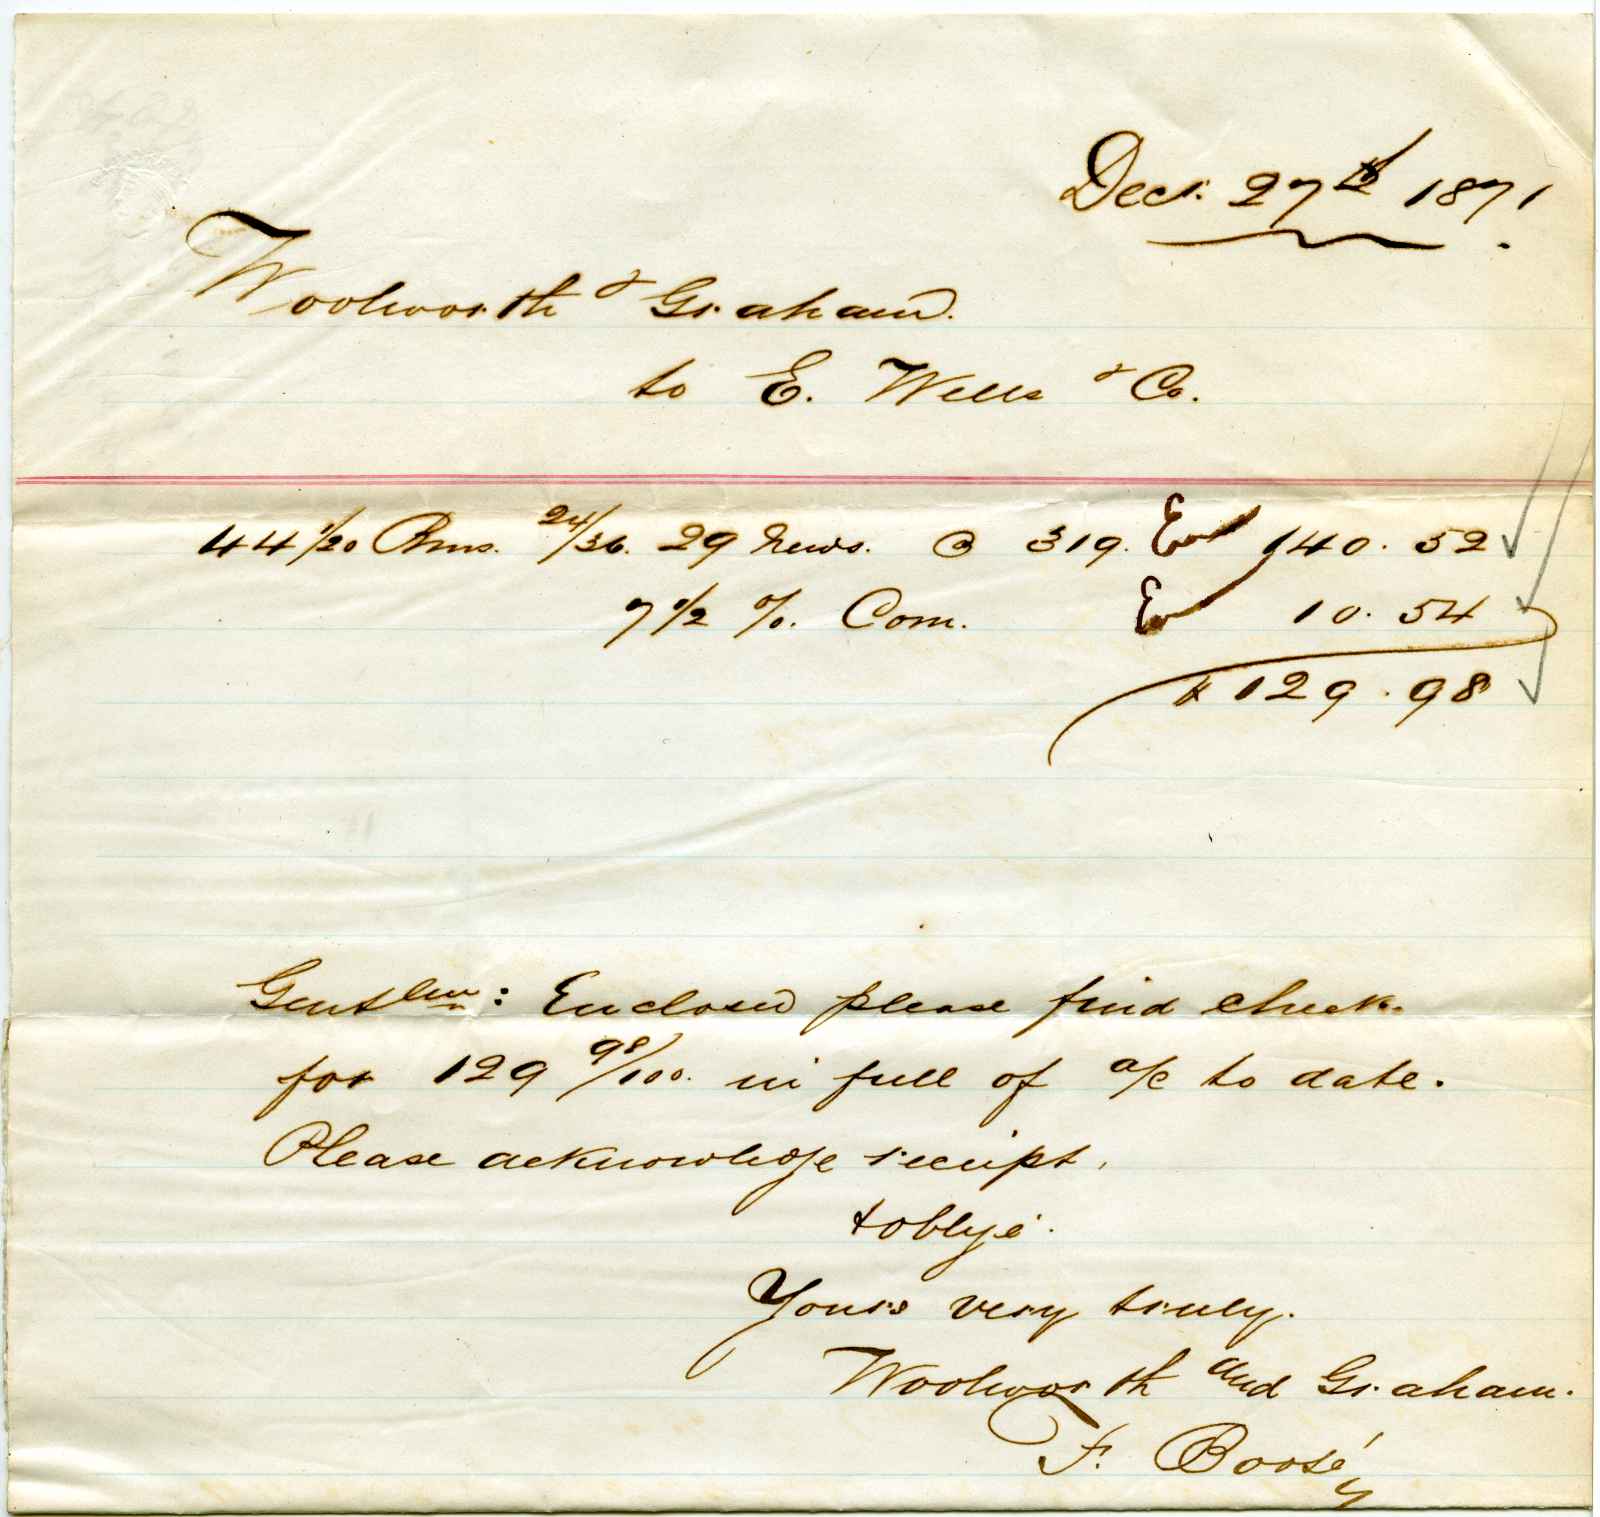 Dec. 27th 1871.
Woolworth & Graham.
to E. Wells & Co.
44 1/20 Rms. 24/36. 29 News. @ 319. 140.52
7 1/2 %. Com. 10.54
$129.98
Gentlen: Enclosed please find check.
for 129 98/100. in full of a/c to date.
Please acknowledge receipt,
& oblige.
Yours very truly.
Woolworth and Graham.
F. Boosé